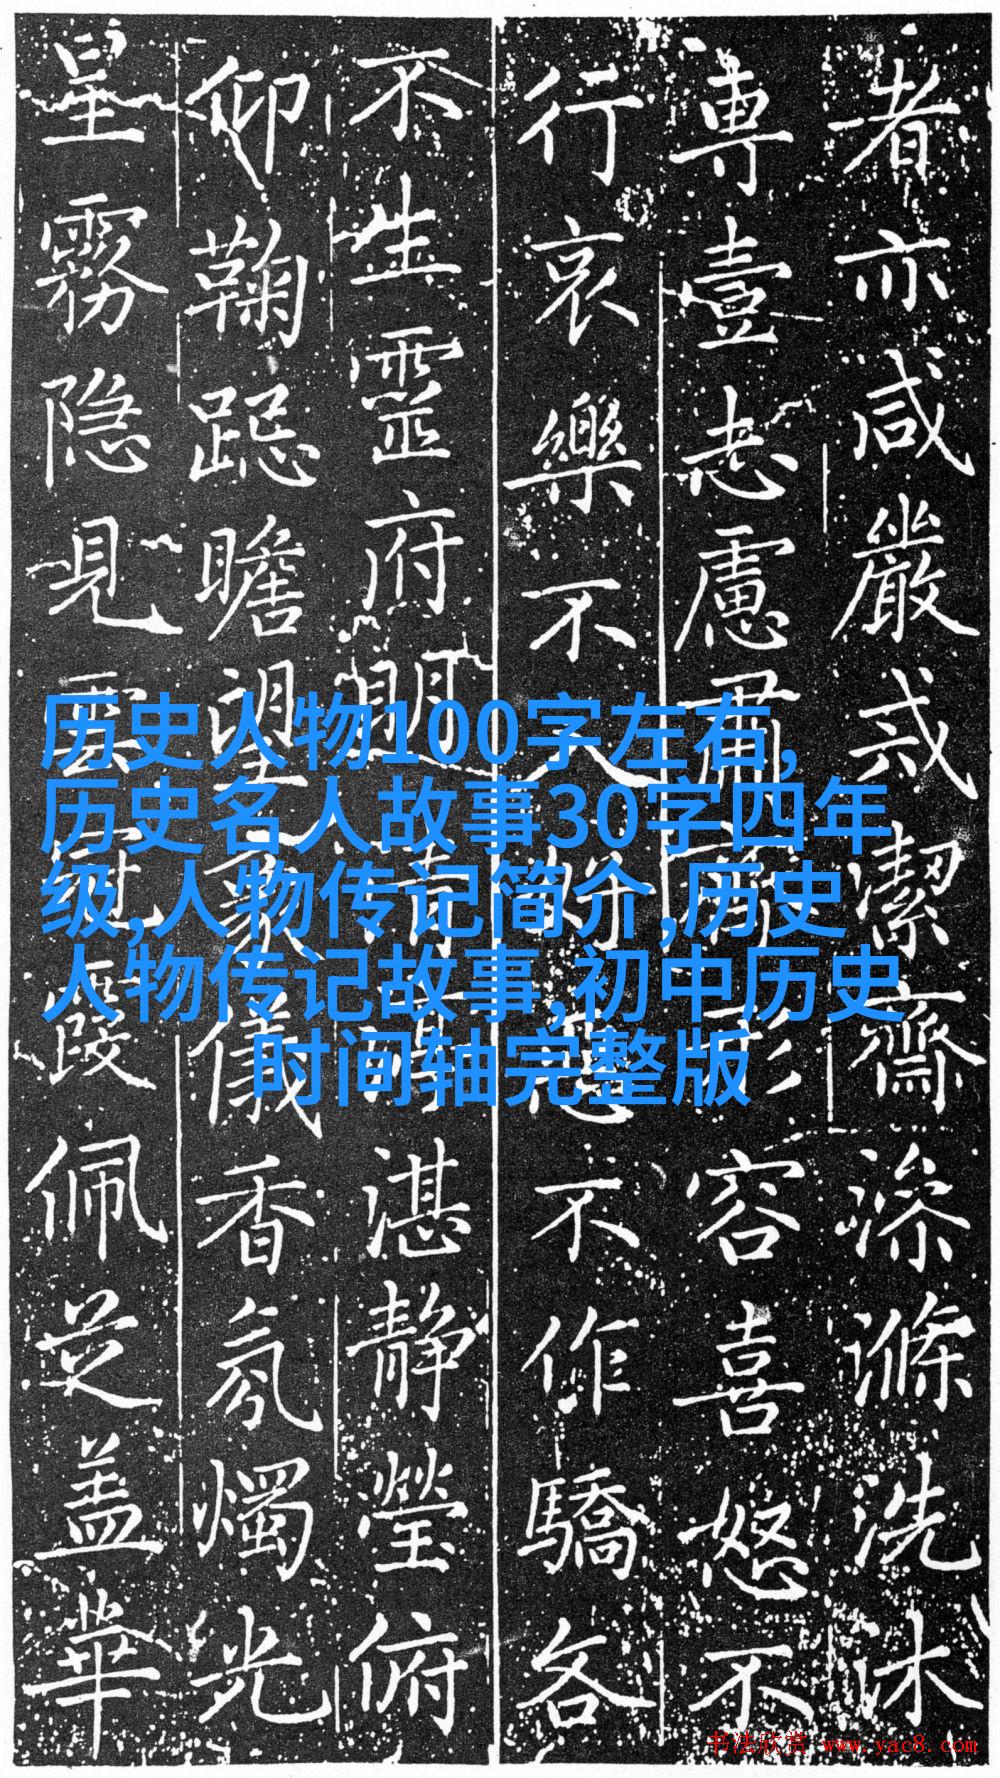 者亦咸嚴戒潔齋澡滌洗沐
專壹志慮肅容喜怒不
行哀樂不入好惡不作驕各
不生靈府明清湛静瑩俯
仰鞠跽瞻望儀香氛燭光
星霧隐見雲冠霞佩芝盖華
历史人物100字左右,
历史名人故事30字四年
级,人物传记简介,历史
人物传记故事,初中历史
时间轴完整版
书法欣赏 www.yac8.com